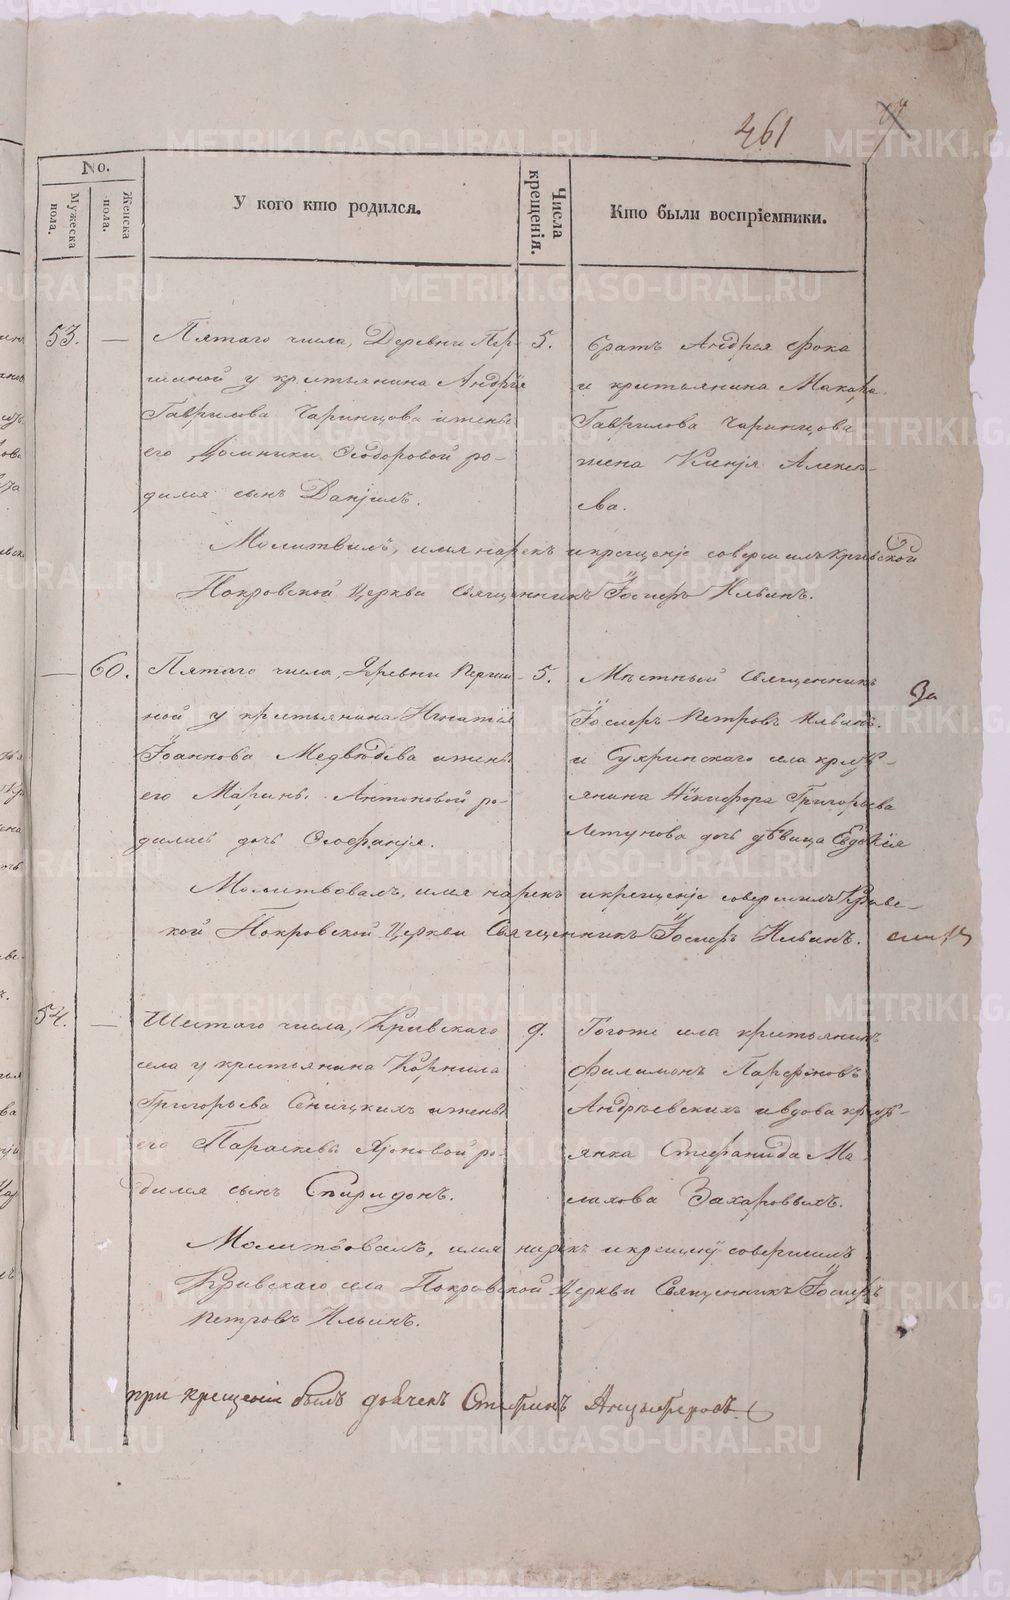 461
No.
Мужеска пола.
Женска пола.
У кого кто родился.
Числа крещенія.
Кто были воспріемники.
53. — Пятаго числа, Деревни Пер-
шиной у крестьянина Андрея
Гаврилова Чаринцова и жены
его Домники Ѳеодоровой ро-
дился сынъ Даніилъ.
5.
братъ Андрея Фока
и крестьянина Макара
Гаврилова Чаринцова
жена Ксенія Алексѣ-
ева.
Молитвилъ, имя нарекъ и крещеніе совершилъ Кривской
Покровской Церкви Священникъ Іосифъ Ильинъ.
— 60. Пятаго числа, Деревни Перши-
ной у крестьянина Игнатія
Іоаннова Медвѣдева и жены
его Марины Антоновой ро-
дилась дочь Ѳеофанія.
5.
Мѣстный Священникъ
Іосифъ Петровъ Ильинъ
и Сухринскаго села крест-
янина Никифора Григорьева
Летунова дочь дѣвица Евдокія
За
Молитвовалъ, имя нарекъ и крещеніе совершилъ Кривс-
кой Покровской Церкви Священникъ Іосифъ Ильинъ.
54. — Шестаго числа, Кривскаго
села у крестьянина Корнила
Григорьева Сеницкихъ и жены
его Параскевы родился сынъ Спиридонъ.
9.
Тогоже села крестьянинъ
Филимонъ Парфеновъ
Андреевскихъ и вдова крест-
янка Стефанида Ма-
лахова Захаровыхъ.
Молитвовалъ, имя нарекъ и крещеніе совершилъ
Кривскаго села Покровской Церкви Священникъ Іосифъ
Петровъ Ильинъ.
при крещеніи былъ дьячекъ Стефанъ Анцыферовъ
METRIKI.GASO-URAL.RU